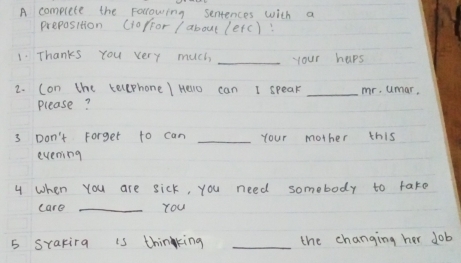 A complete the Following sentences with a
Preposition (to/for / about / etc) :
1. Thanks You very much ________ your helps
2. (on the telephone) Hello can I speak ________ mr. umar,
Please ?
3 Don't Forget to can ________ Your mother this
evening
4 When You are sick, You need somebody to take
care ________ You
5 Syakira is thinking ________ the changing her Job